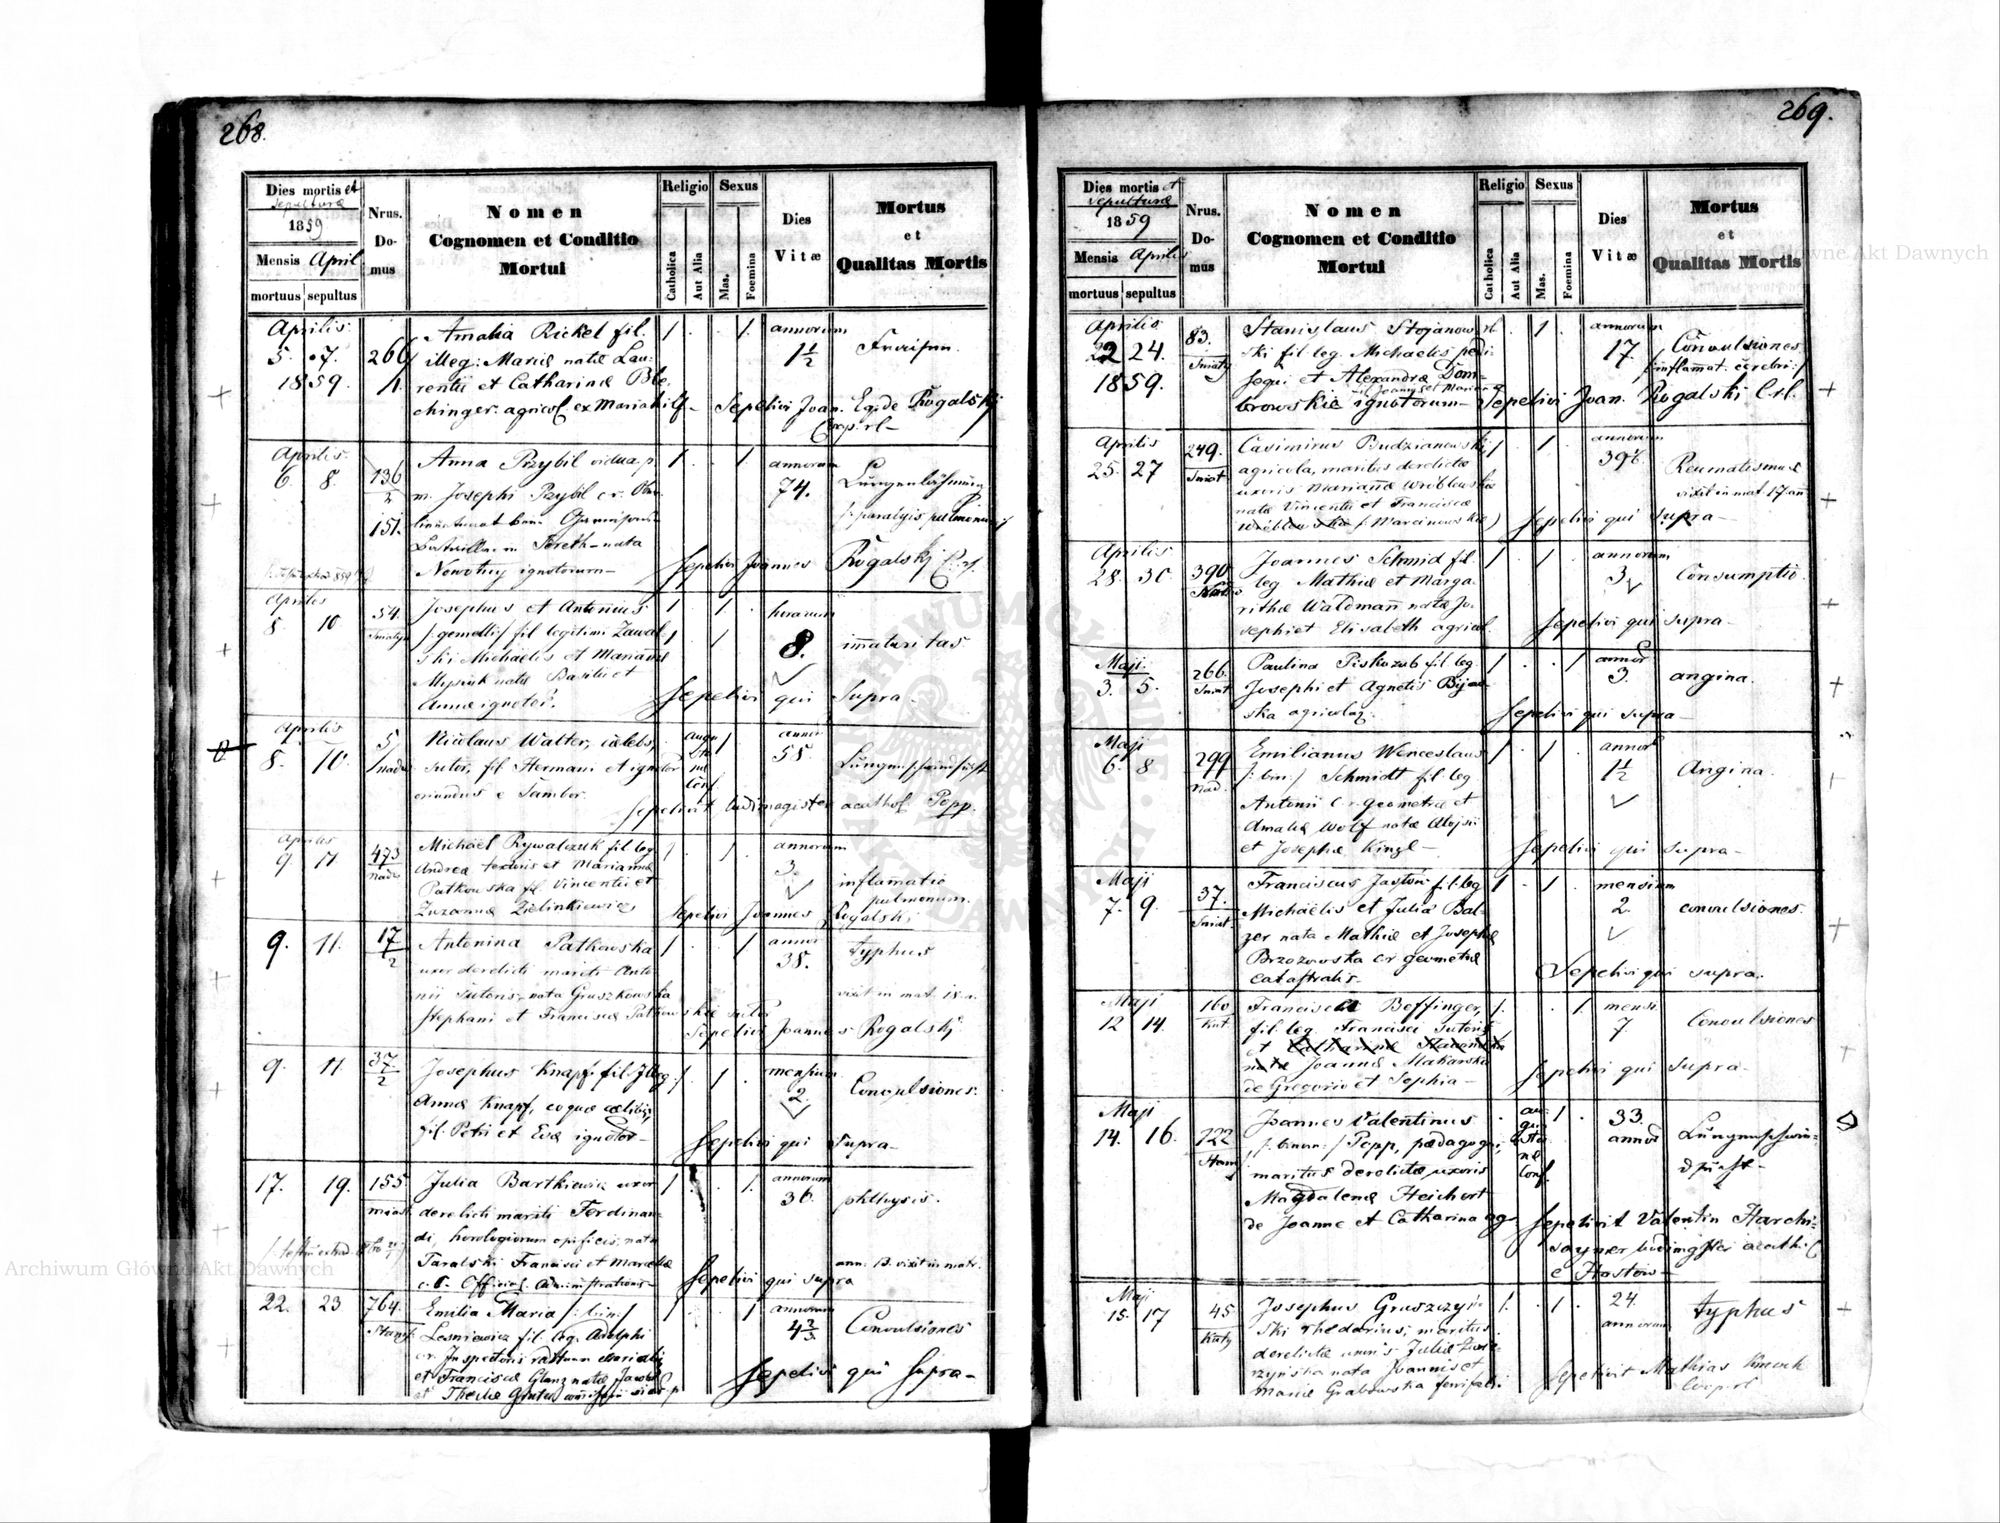 268.
Dies mortis et
sepulturæ
1859
Mensis April.
mortuus sepultus
Nrus.
Do-
mus
Nomen
Cognomen et Conditio
Mortui
Religio
Catholica
Aut Alia
Sexus
Mas.
Foemina
Dies
Vitæ
Mortus
et
Qualitas Mortis
Aprilis
5. 7.
1859.
266
Amalia Rickel fil.
illeg: Mariæ natæ Lau-
rentii et Catharinæ
agricol. ex Mariahilf
1 . . 1.
annorum
1½
Fraisen.
Sepelivi Joan. Eq. de Rogalski
Coop. rl
Aprilis
6. 8.
136
2
151.
Anna Przybil vidua p.
m. Josephi Przybil
nata
Nowotny ignotorum
1 . . 1.
annorum
74.
Lungenlähmung
/: paralysis pulmonum :/
Sepelivi Joannes Rogalski
Aprilis
8. 10
54
Sniatyn
Josephus et Antonius
/: gemelli :/ fil legitimi Zawal-
ski Michaelis et Mariannæ
Mysiuk natæ Basilii et
Annæ ignotor.
1 1
1 1
horarum
8.
imaturitas
Sepelivi qui Supra.
Aprilis
8. 10.
5
Nicolaus Walter, cælebs,
sutor, fil Hermani et ignotor
oriundus e Sambor.
augu
sta
næ
Conf.
1
annor
58.
Lungenschwindsucht
Sepelivit ludimagister acathol. Popp.
Aprilis
9. 11
473
Michaël Rywalczuk fil leg
Andreæ textoris et Mariannæ
Patkowska fil. Vincentii et
Zuzannæ Zielinkiewicz
1 . 1
annorum
3.
inflamatio
pulmonum.
Sepelivi Joannes Rogalski
9. 11.
17
2
Antonina Patkowska
uxor derelicti mariti Anto-
nii sutoris, nata Gruszkowska
Stephani et Franciscæ Patkowskie sutor
1 . . 1
annor
38.
typhus
vixit in mat. 18. a.
Sepelivi Joannes Rogalski
9. 11
37
2
Josephus Knapf fil illeg.
Annæ Knapf, coquæ cælibis,
fil. Petri et Evæ ignotor
1 . 1 .
mensium
2.
Convulsiones.
Sepelivi qui supra
17. 19.
155
miast
Julia Bartkiewicz uxor
derelicti mariti Ferdinan-
di, horologiorum opificis, nata
Taralski Francisci et Mariæ
c. r. Official. Administrations
1 . . 1.
annorum
36.
phthysis.
ann: 13. vixit in matr.
Sepelivi qui supra
22. 23
764.
Emilia Maria /: bin :/
Lesniewicz fil. leg. Adolphi
c. r. Inspectoris
et Franciscæ Glanz natæ Jacobi
1 . . 1
annorum
4⅔
Convulsiones
Sepelivi qui Supra
269.
Dies mortis et
sepulturæ
1859
Mensis Aprilis
mortuus sepultus
Nrus.
Do-
mus
Nomen
Cognomen et Conditio
Mortui
Religio
Catholica
Aut Alia
Sexus
Mas.
Foemina
Dies
Vitæ
Mortus
et
Qualitas Mortis
Aprilis
22 24.
1859.
83.
Sniaty
Stanislaus Stojanow-
ski fil. leg. Michaelis pedi-
sequi et Alexandræ Dom-
browskie ignotorum
1 .
annorum
17.
Convulsiones
/: inflamat. cerebri :/
Sepelivi Joan. Rogalski C. rl.
Aprilis
25. 27
249.
Sniat.
Casimirus Budzianowski
agricola, maritus derelictæ
uxoris Mariannæ Wróblewskie
natæ Vincentii et Franciscæ
/: Marcinowskie
1 . 1 .
annorum
39½.
Reumatismus
vixit in mat. 17. an
Sepelivi qui supra
Aprilis
28. 30.
390
Joannes Schmid fil.
leg Mathiæ et Marga-
rithæ Waldmañ natæ Jo-
sephi et Elisabeth agricol.
1 . 1 .
annorum
3
Consumptio.
Sepelivi qui supra
Maji
3. 5.
266.
Sniat
Paulina Piskozub fil. leg.
Josephi et Agnetis
ska agricolar.
1 . . 1
annor
3.
angina.
Sepelivi qui supra
Maji
6. 8
299
Nad.
Emilianus Wenceslaus
/: bin :/ Schmidt fil. leg
Antonii c. r. geometræ et
Amaliæ Wolf natæ Alojsii
et Josephæ Kinzl
1 . 1 .
annor
1½
Angina.
Sepelivi qui supra
Maji
7. 9.
37.
Sniat.
Franciscus Jastoń fil. leg
Michaëlis et Juliæ Bal-
zer nata Mathiæ et Josephæ
Brzozowska cr geometræ
catastralis.
1 . 1 .
mensium
2.
convulsiones.
Sepelivi qui supra.
Maji
12 14.
160
Kut.
Francisca Boffinger,
fil. leg. Francisci sutoris
et
Joannæ Makarska
de Gregorio et Sophia
1. . 1.
mensi.
7
Convulsiones
Sepelivi qui supra.
Maji
14. 16.
722
Joannes Valentinus
/: binom :/ Popp, pædagogus,
maritus derelictæ uxoris
Magdalenæ Heichert
de Joanne et Catharina agr.
au-
gu
sta
næ
Conf.
1 .
33.
annor
Lungenschwin-
dsucht
Sepelivit Valentin Harchi-
sayner ludimgster acathol
e Hostow
Maji
15. 17
45
Kuty
Josephus Gruszczyń-
ski rhedarius, maritus
derelictæ uxoris Juliæ
nata Joannis et
Mariæ Grabowska
1. . 1 .
24.
annorum
typhus
Sepelivit Mathias
Coop. rl
Archiwum Główne Akt Dawnych
Archiwum Główne Akt Dawnych
ARCHIWUM GŁÓWNE AKT DAWNYCH